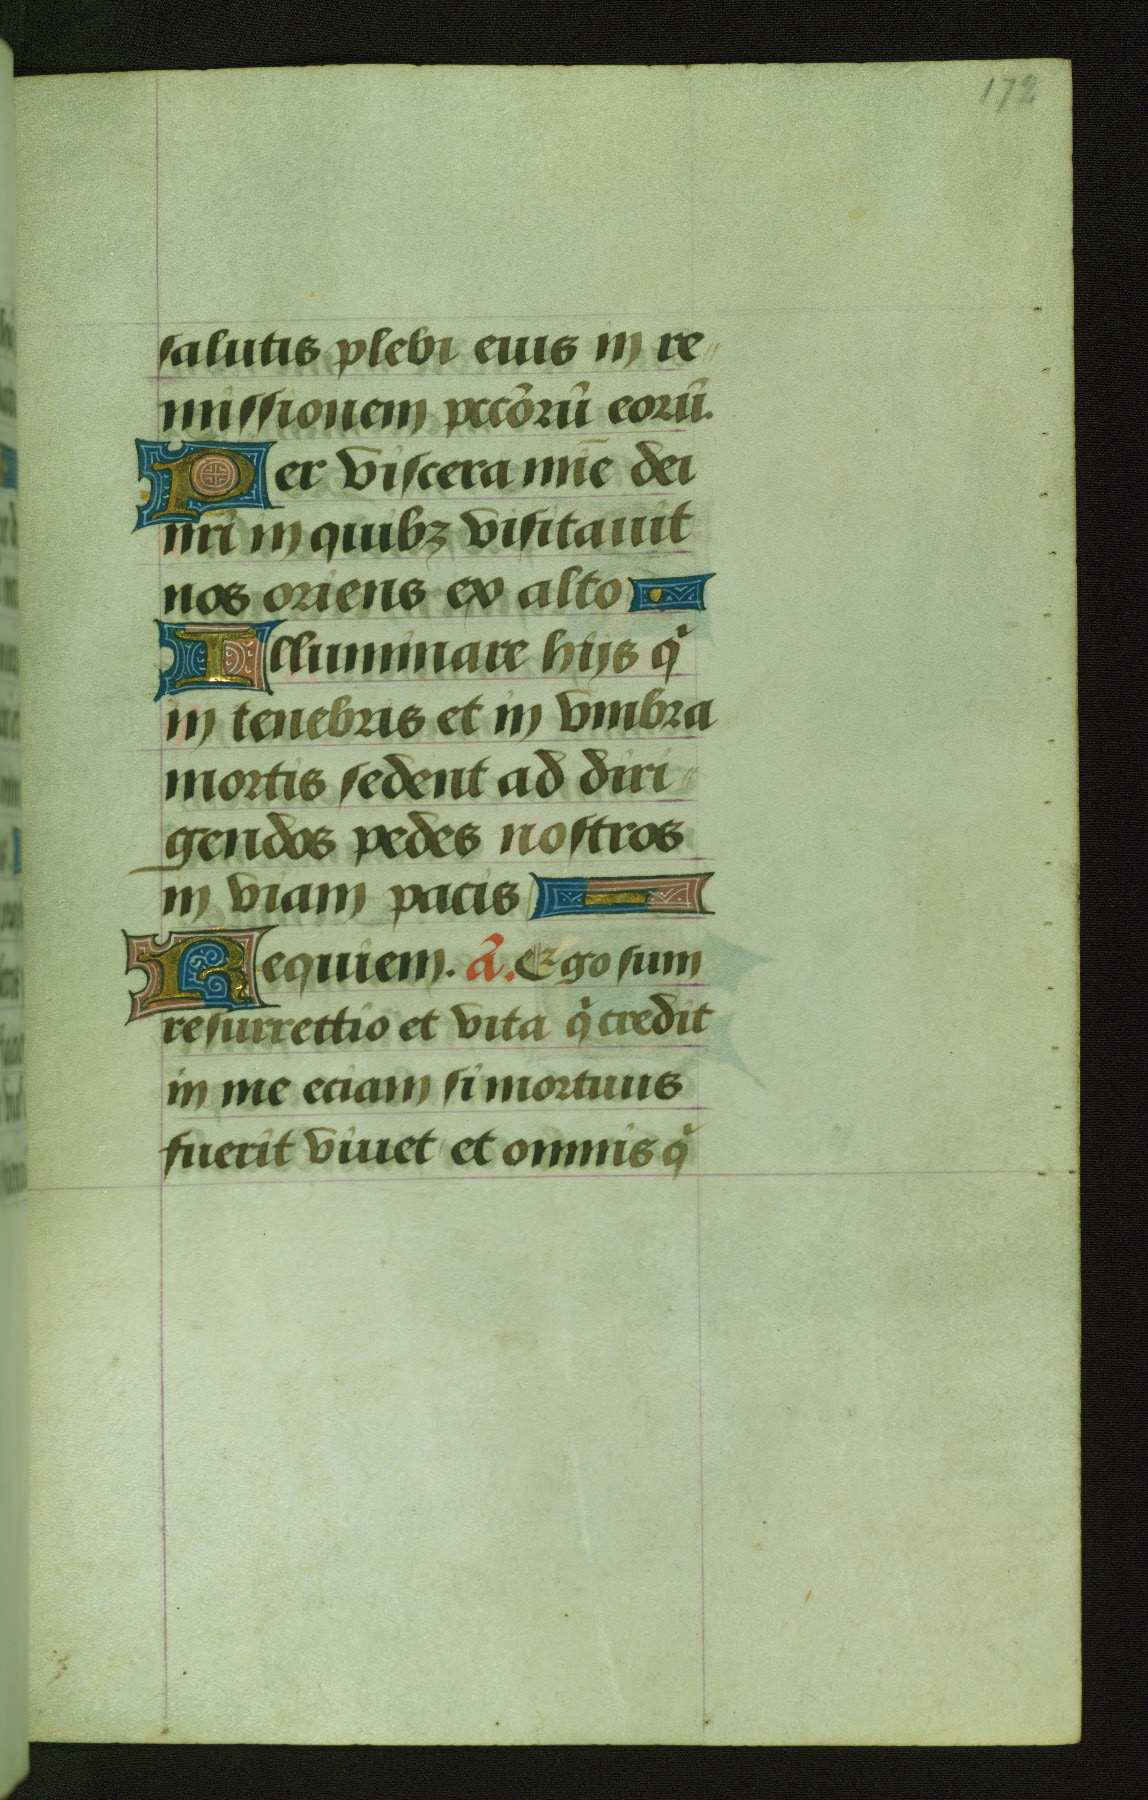 172
salutis plebi eius in re-
missionem pccōrū eorū.
Per viscera mīe dei
nrī in quibꝫ visitauit
nos oriens ex alto
Illuminare hijs qⁱ
in tenebris et in vmbra
mortis sedent ad diri-
gendos pedes nostros
in viam pacis
Requiem. ā. Ego sum
resurrettio et vita qⁱ credit
in me eciam si mortuus
fuerit viuet et omnis qⁱ